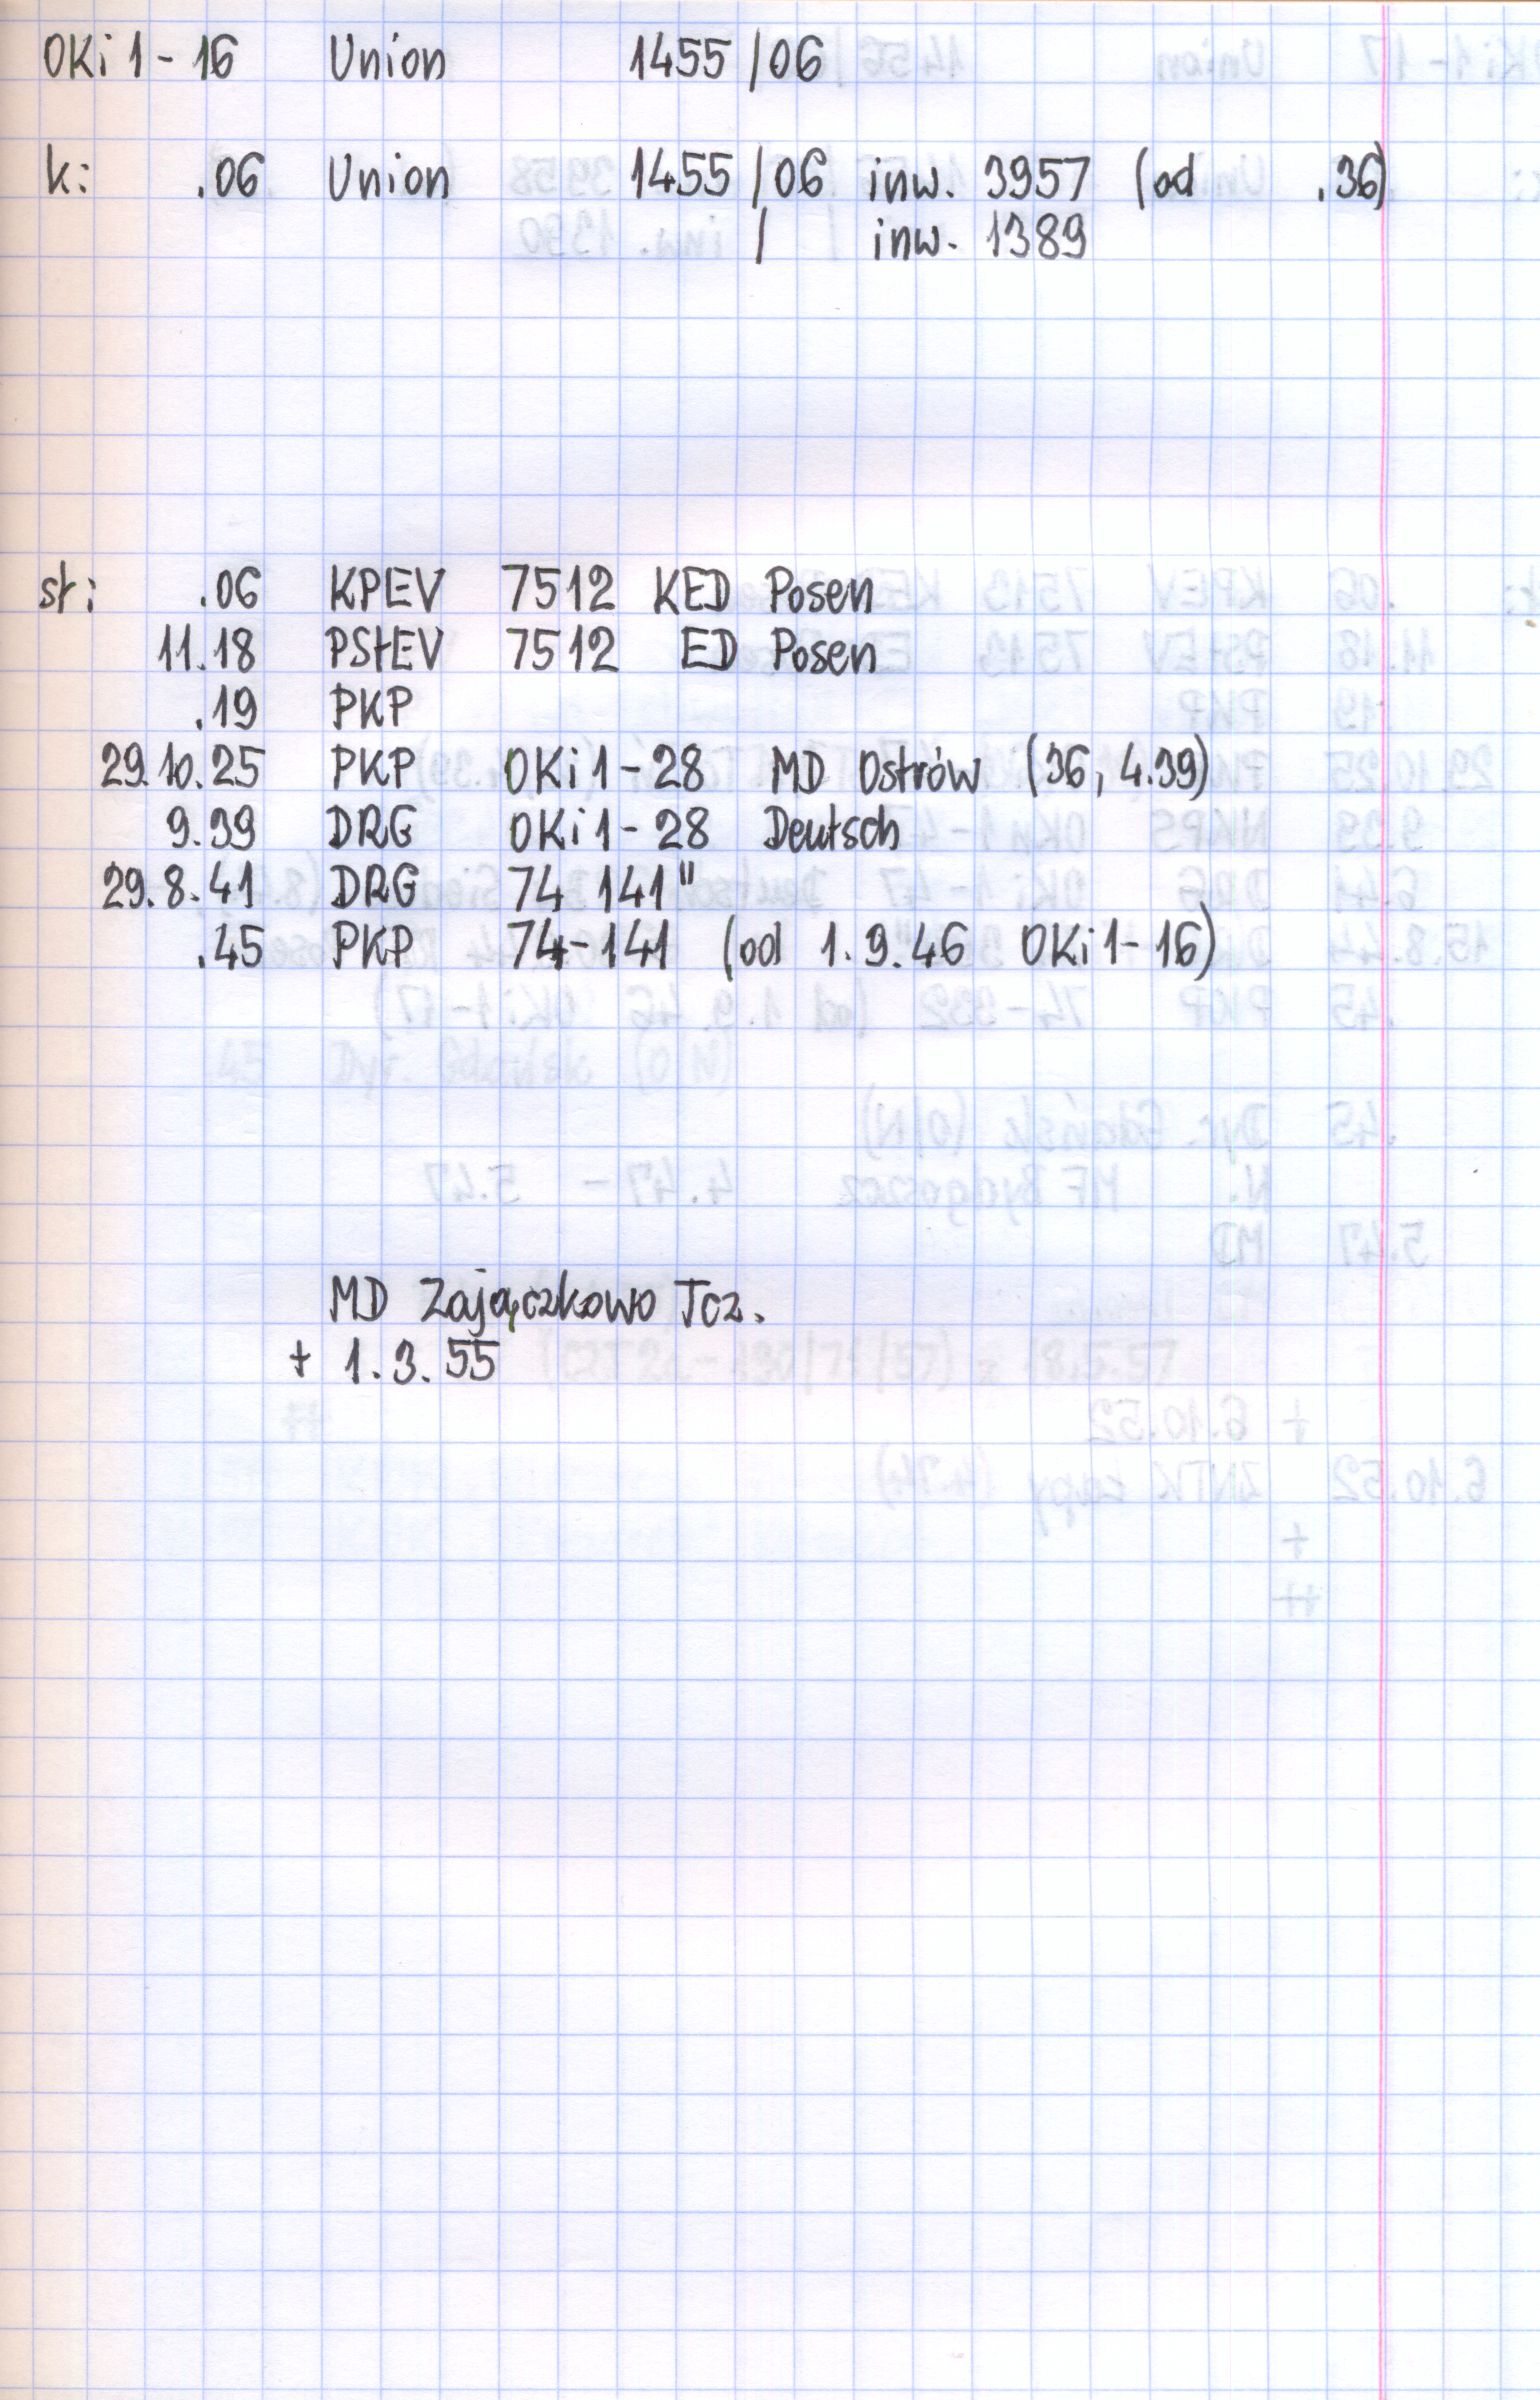 OKi 1 - 16 Union 1455 / 06
k: .06 Union 1455 / 06 inw. 3957 (od .36)
/ inw. 1389
st: .06 KPEV 7512 KED Posen
11.18 PStEV 7512 ED Posen
.19 PKP
29.10.25 PKP OKi 1 - 28 MD Ostrów (36, 4.39)
9.39 DRG OKi 1 - 28 Deutsch
29.8.41 DRG 74 141"
.45 PKP 74-141 (od 1.9.46 OKi 1-16)
MD Zajączkowo Tcz.
+ 1.3.55